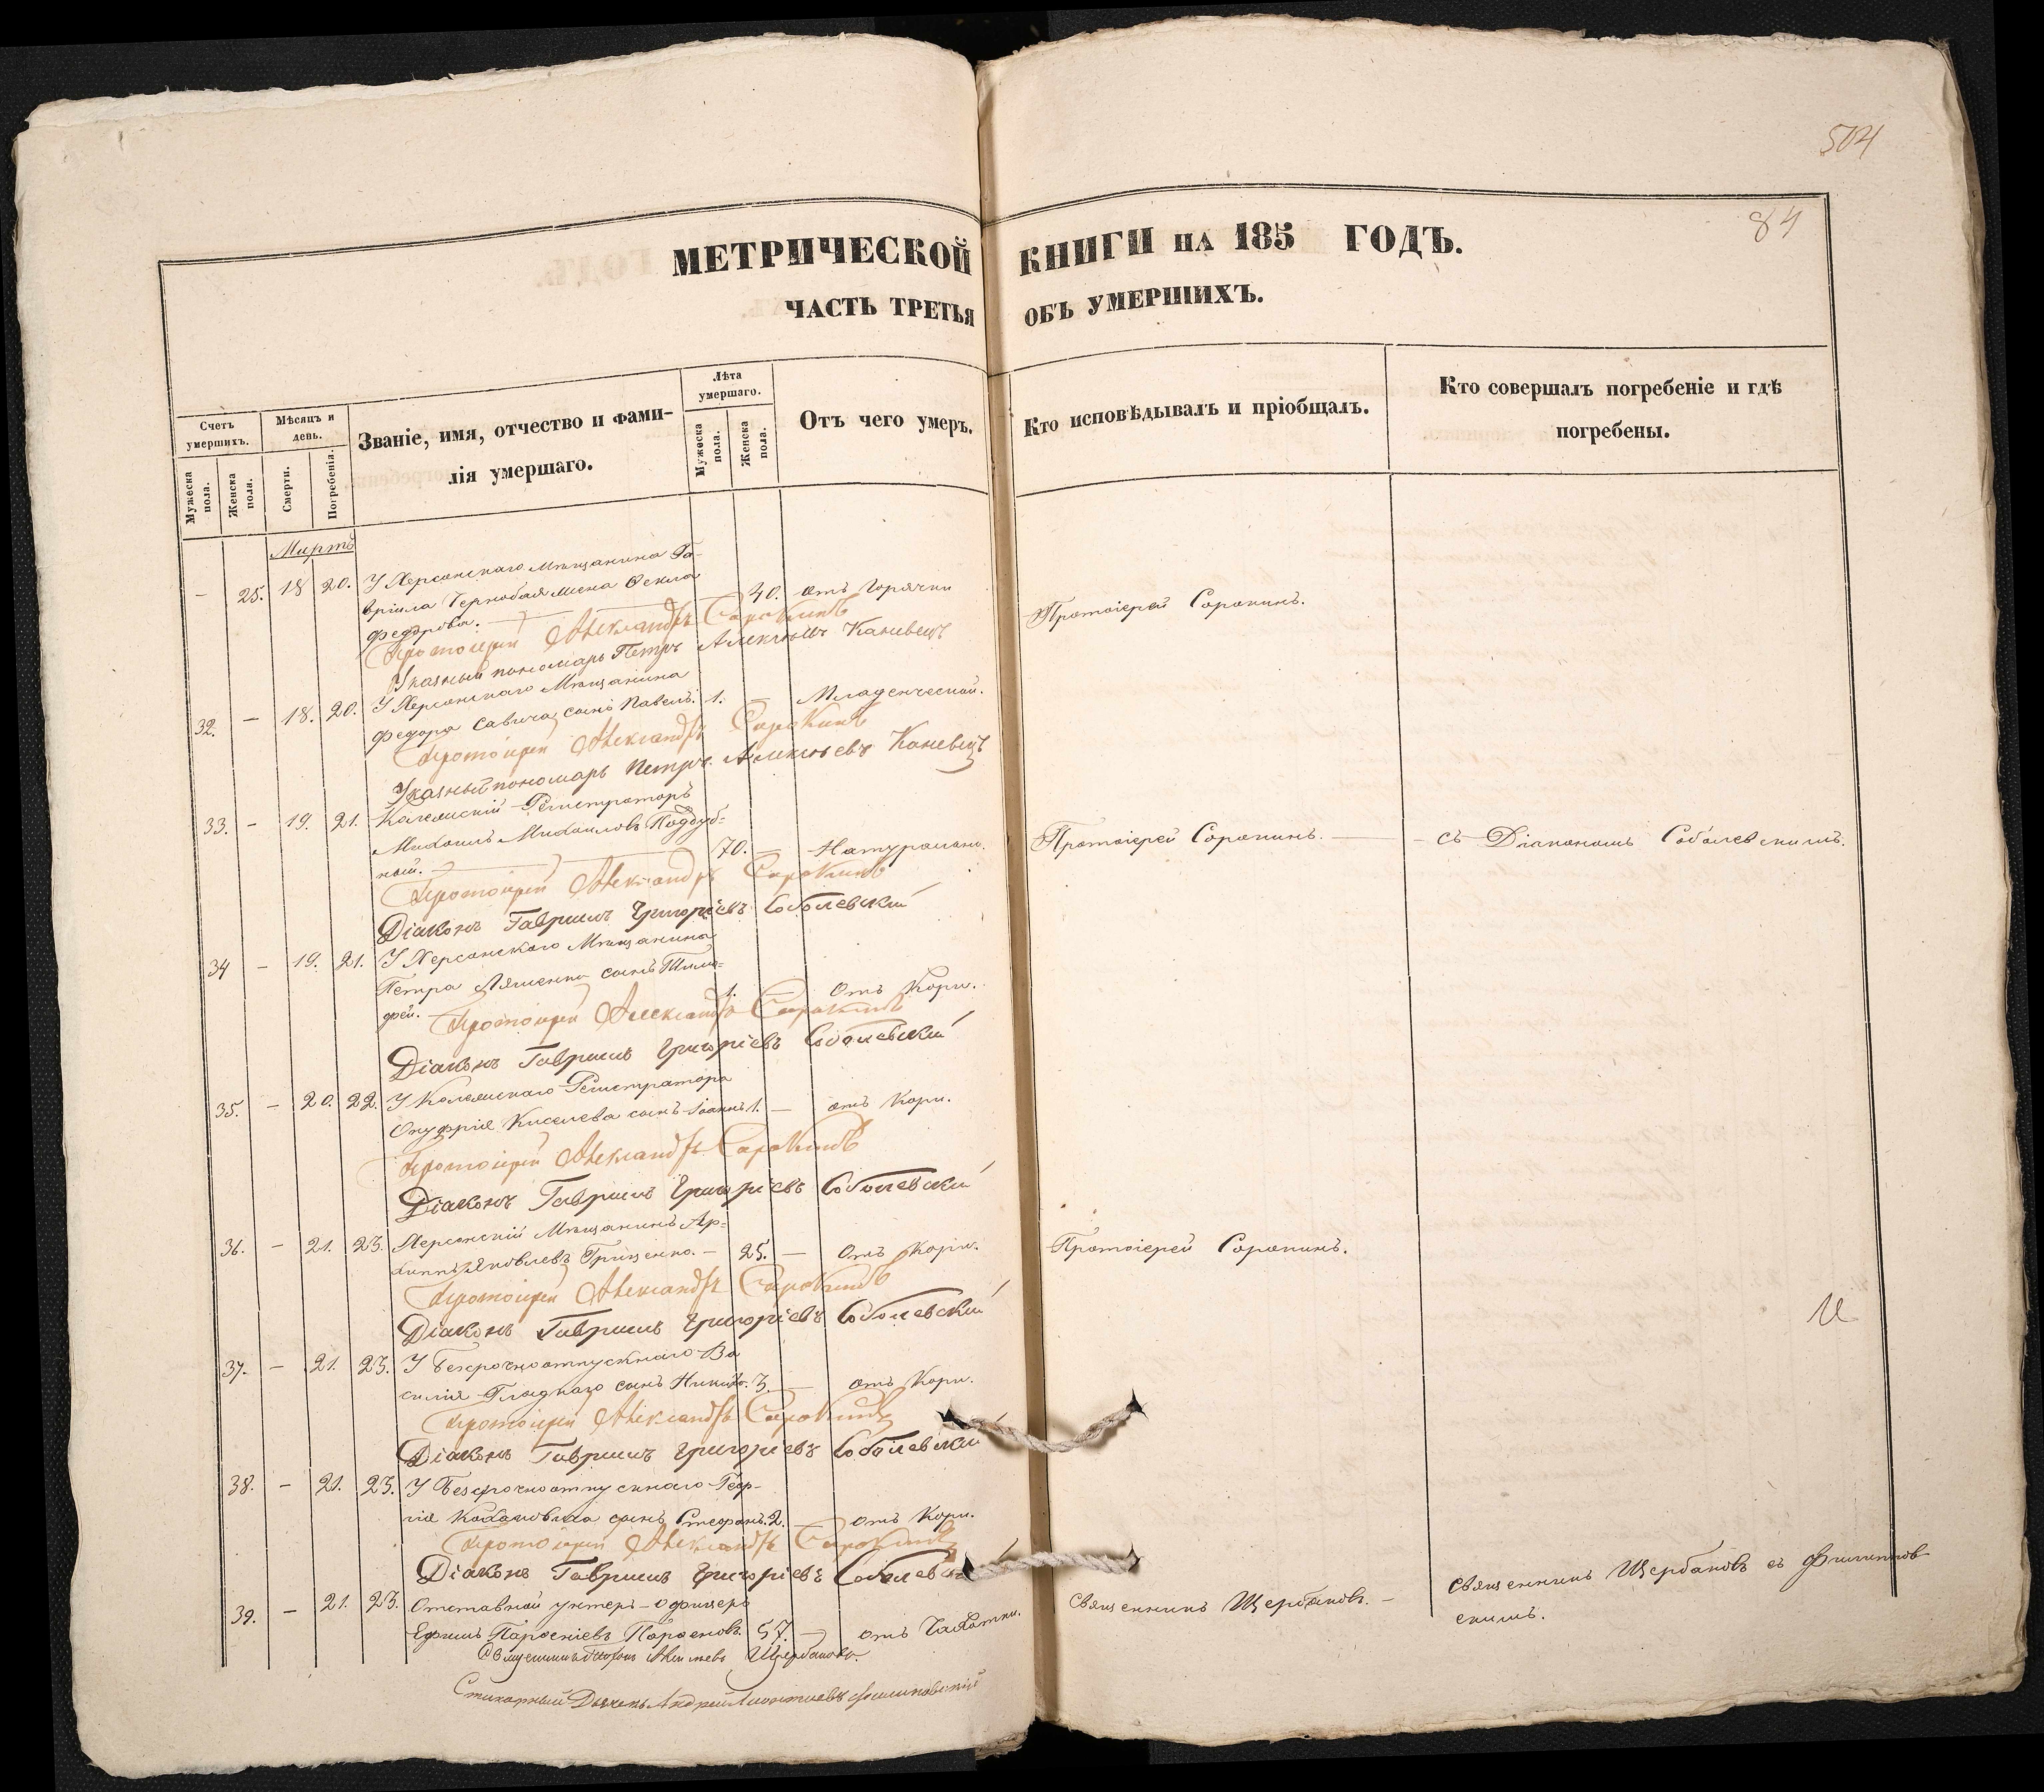 504
84
МЕТРИЧЕСКОЙ КНИГИ НА 185 ГОДЪ.
ЧАСТЬ ТРЕТЬЯ ОБЪ УМЕРШИХЪ.
Счетъ умершихъ.
Мужеска пола.
Женска пола.
Мѣсяцъ и день.
Смерти.
Погребенія.
Званіе, имя, отчество и фами-
лія умершаго.
Лѣта умершаго.
Мужеска пола.
Женска пола.
Отъ чего умеръ.
Кто исповѣдывалъ и пріобщалъ.
Кто совершалъ погребеніе и гдѣ
погребены.
Мартъ
– 25. 18 20. У Херсонскаго мѣщанина Га-
вріила Чернобая жена Ѳекла
Федорова. 40. отъ Горячки Протоіерей Сорокинъ.
Протоіерей Александръ Сорокинъ
Указный пономарь Петръ Алексѣевъ Каневецъ
32. – 18. 20. У Херсонскаго Мѣщанина
Федора Савича сынъ Павелъ. 1. – Младенческой.
Протоіерей Александръ Сорокинъ
Указный пономарь Петръ Алексѣевъ Каневецъ
33. – 19. 21. Колежскій Регистраторъ
Михаилъ Михаиловъ Поддуб-
ный. 70. – Натурально. Протоіерей Сорокинъ. – съ Діакономъ Соболевскимъ.
Протоіерей Александръ Сорокинъ
Діаконъ Гавріилъ Григоріевъ Соболевскій
34 – 19. 21. У Херсонскаго Мѣщанина
Петра Ляшенка сынъ Тимо-
фей. 1. – Отъ Кори.
Протоіерей Александръ Сорокинъ
Діаконъ Гавріилъ Григоріевъ Соболевскій
35. – 20. 22. У Колежскаго Регистратора
Онуфрія Киселева сынъ Іоаннъ 1. – отъ Кори.
Протоіерей Александръ Сорокинъ
Діаконъ Гавріилъ Григоріевъ Соболевскій
36. – 21. 23. Херсонскій Мѣщанинъ Ар-
хиппъ Яковлевъ Грищенко. – 25. – Отъ Кори. Протоіерей Сорокинъ.
Протоіерей Александръ Сорокинъ
Діаконъ Гавріилъ Григоріевъ Соболевскій
37. – 21. 23. У Безсрочноотпускнаго Ва
силія Гладкаго сынъ Никита. 3. – отъ Кори.
Протоіерей Александръ Сорокинъ
Діаконъ Гавріилъ Григоріевъ Соболевскій
38. – 21. 23. У Безсрочноотпускнаго Геор-
гія сынъ Стефанъ. 2. – отъ Кори.
Протоіерей Александръ Сорокинъ
Діаконъ Гавріилъ Григоріевъ Соболевскій
39. – 21. 23. Отставной унтеръ-офицеръ
Ефимъ Парѳеніевъ Парѳеновъ. 57. – отъ Чахотки. Священникъ Щербаковъ. – Священникъ Щербаковъ съ Филипов
скимъ.
Священникъ Щербаковъ.
Стихарный Дьячекъ Андрей Леонтіевъ Филиповскій